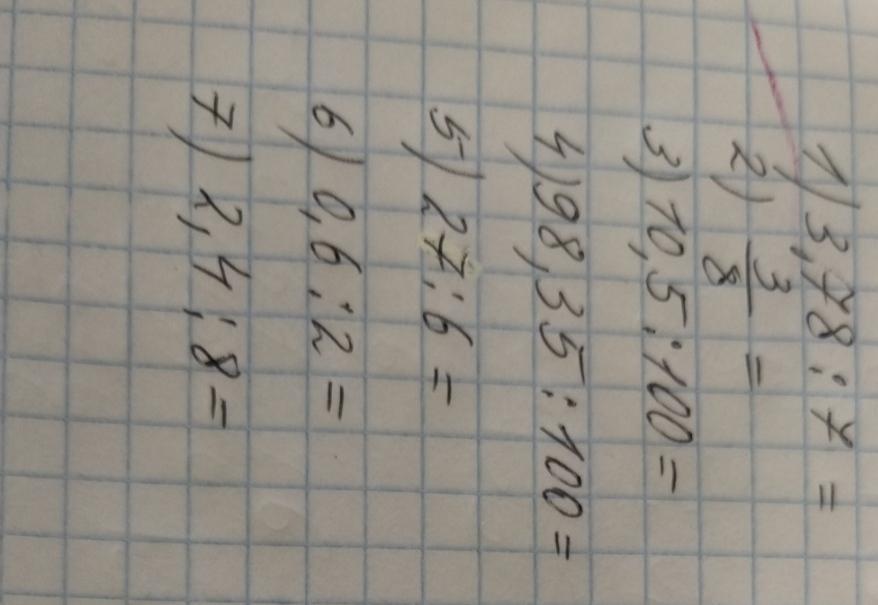 1) 3,78 : 7 =
2) 3/8 =
3) 10,5 : 100 =
4) 98,35 : 100 =
5) 27 : 6 =
6) 0,6 : 2 =
7) 2,4 : 8 =